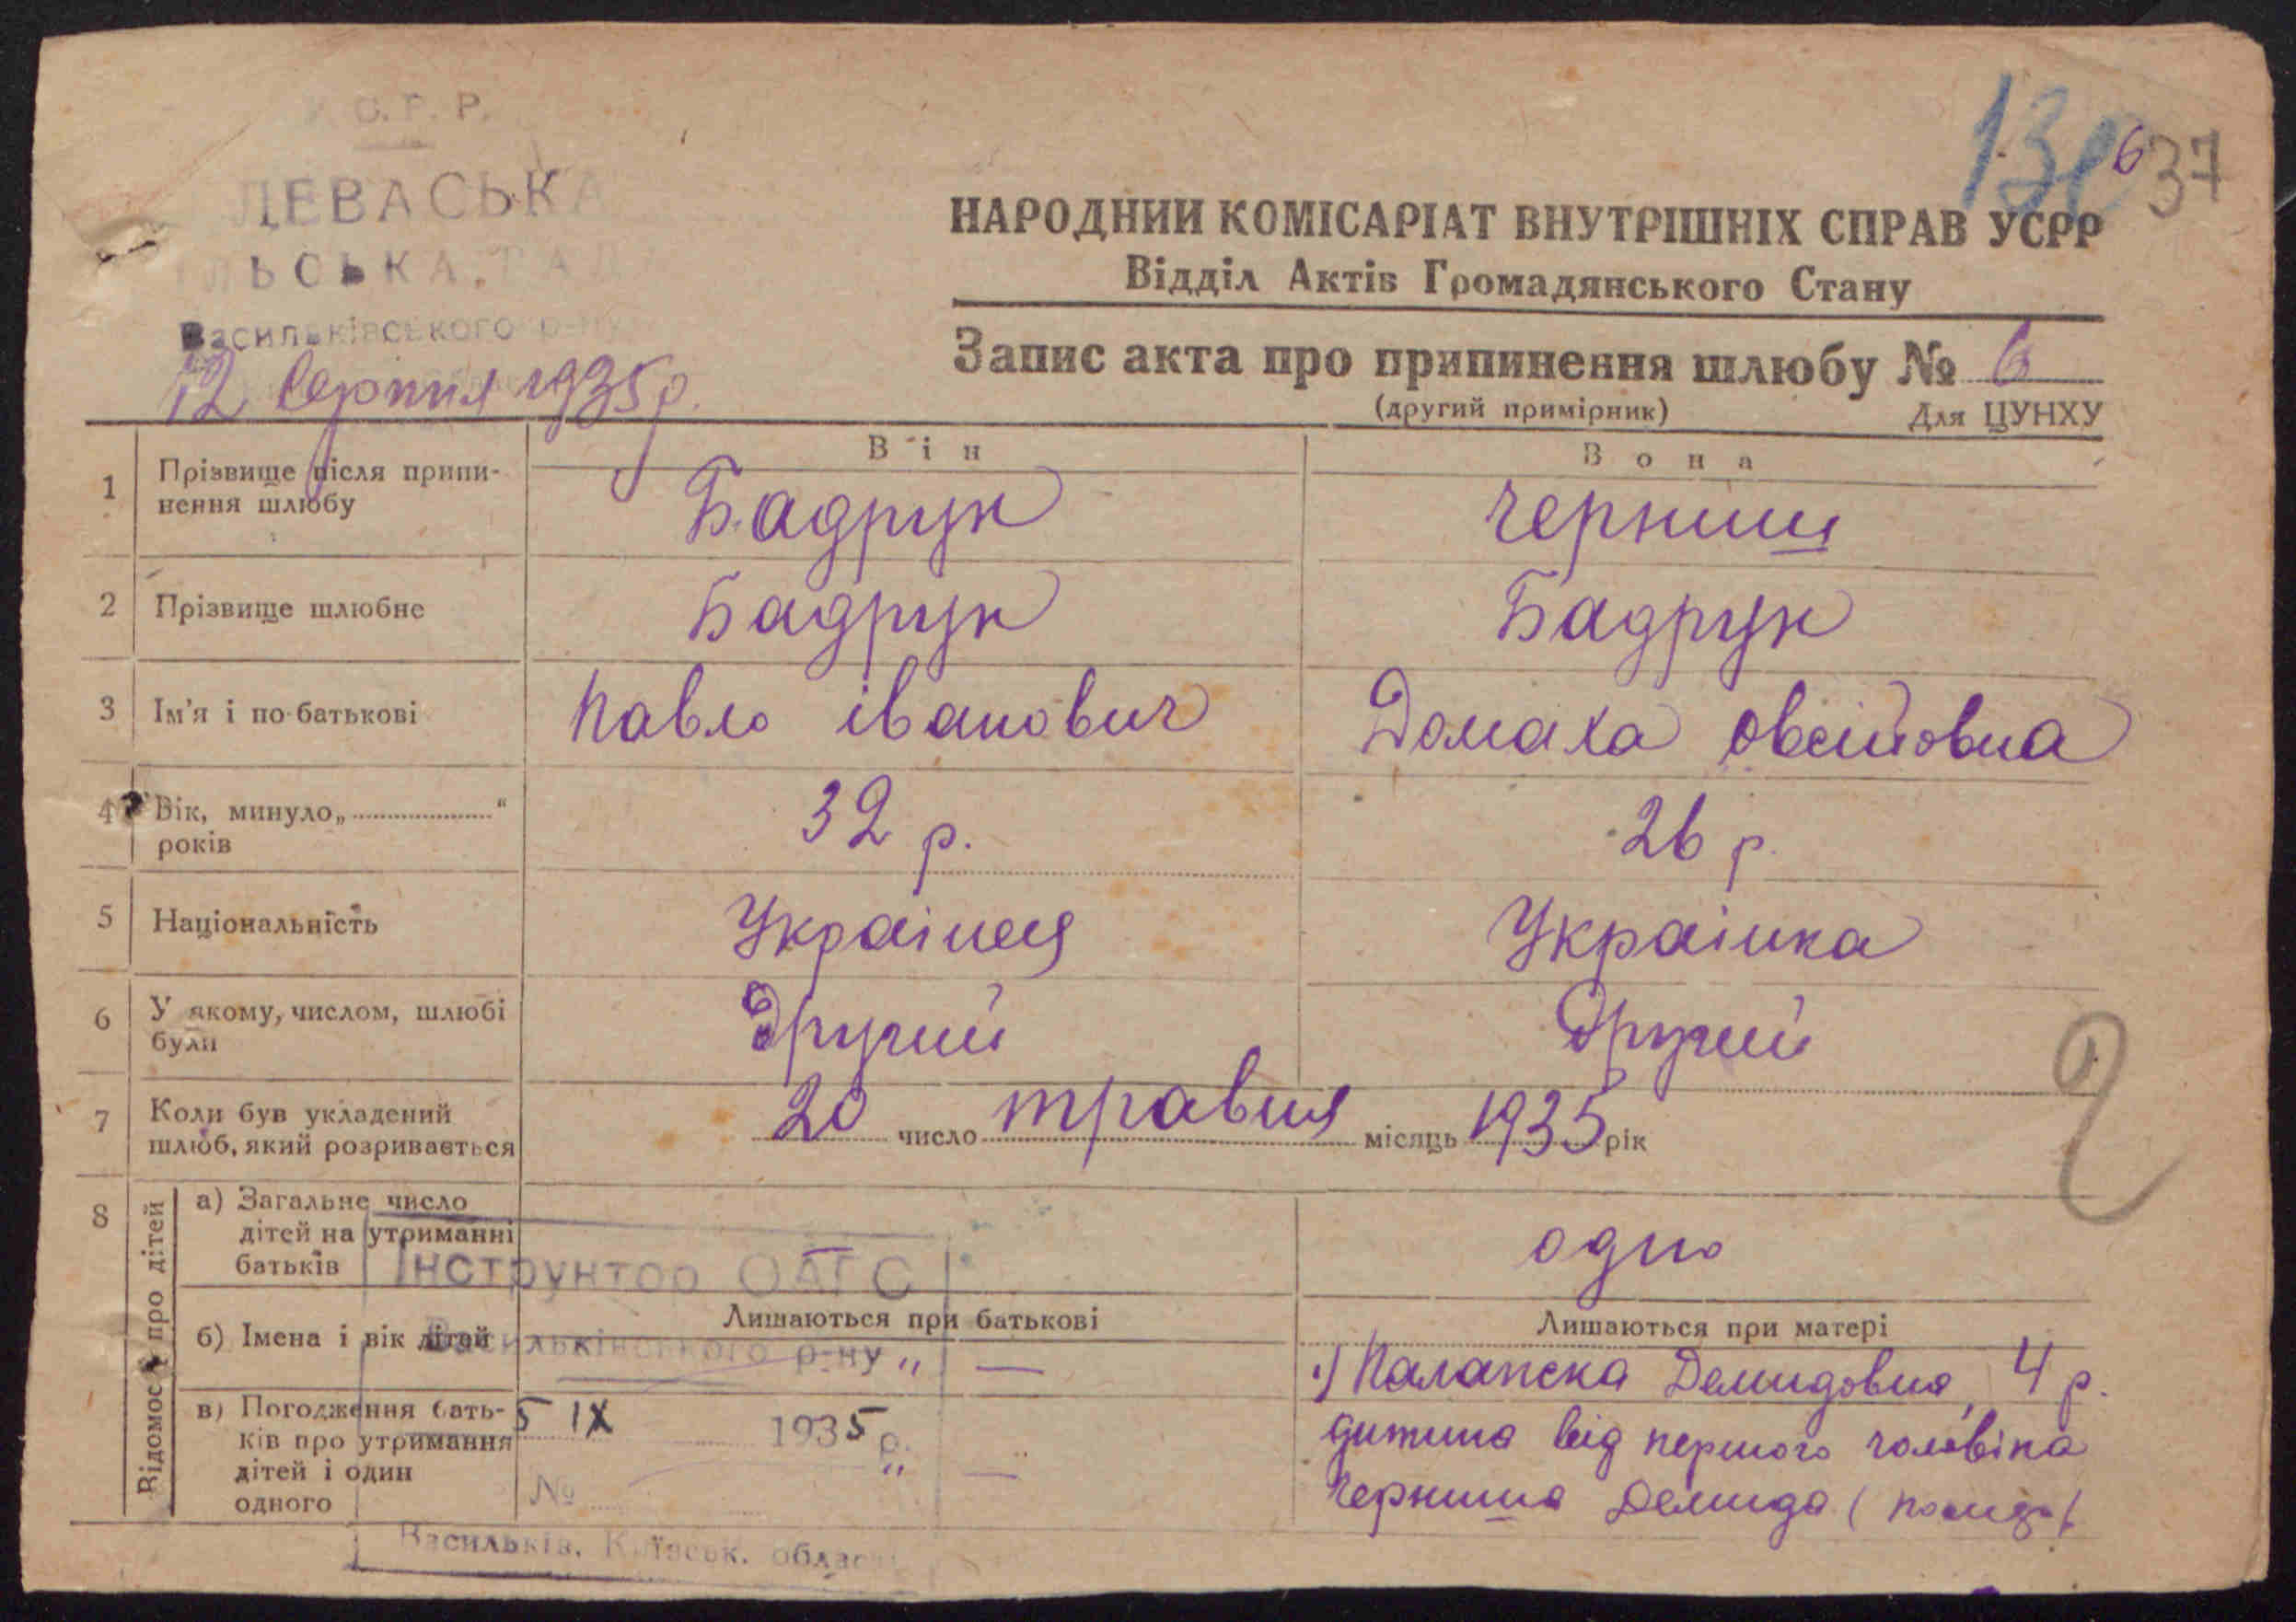 С. Р. Р.
ЛЕВАСЬКА
ЛЬСЬКА РАД
Васильківського р-ну
12 Серпня 1935 р.
6
37
НАРОДНИЙ КОМІСАРІАТ ВНУТРІШНІХ СПРАВ УСРР
Відділ Актів Громадянського Стану
Запис акта про припинення шлюбу № 6
(другий примірник) Для ЦУНХУ
Він Вона
1 Прізвище після припи-
нення шлюбу
Бадрук Черниш
2 Прізвище шлюбне Бадрук Бадрук
3 Ім'я і по-батькові Павло Іванович Домаха Овсіївна
4 Вік, минуло „ “
років
32 р. 26 р.
5 Національність Українец Українка
6 У якому, числом, шлюбі
були
Другий Другий
7 Коли був укладений
шлюб, який розривається
20 число травня місяць 1935 рік
8 Відомості про дітей
а) Загальне число
дітей на утриманні
батьків
одно
Інструктор ОАГС
Лишаються при батькові Лишаються при матері
б) Імена і вік дітей
Васильківського р-ну „ —
1) Палапска Демидовна, 4 р.
в) Погодження бать-
ків про утримання
дітей і один
одного
5 IX 1935 р.
„ —
№
дитина від першого чоловіка
Черниша Демида
Васильків, Київськ. област
2